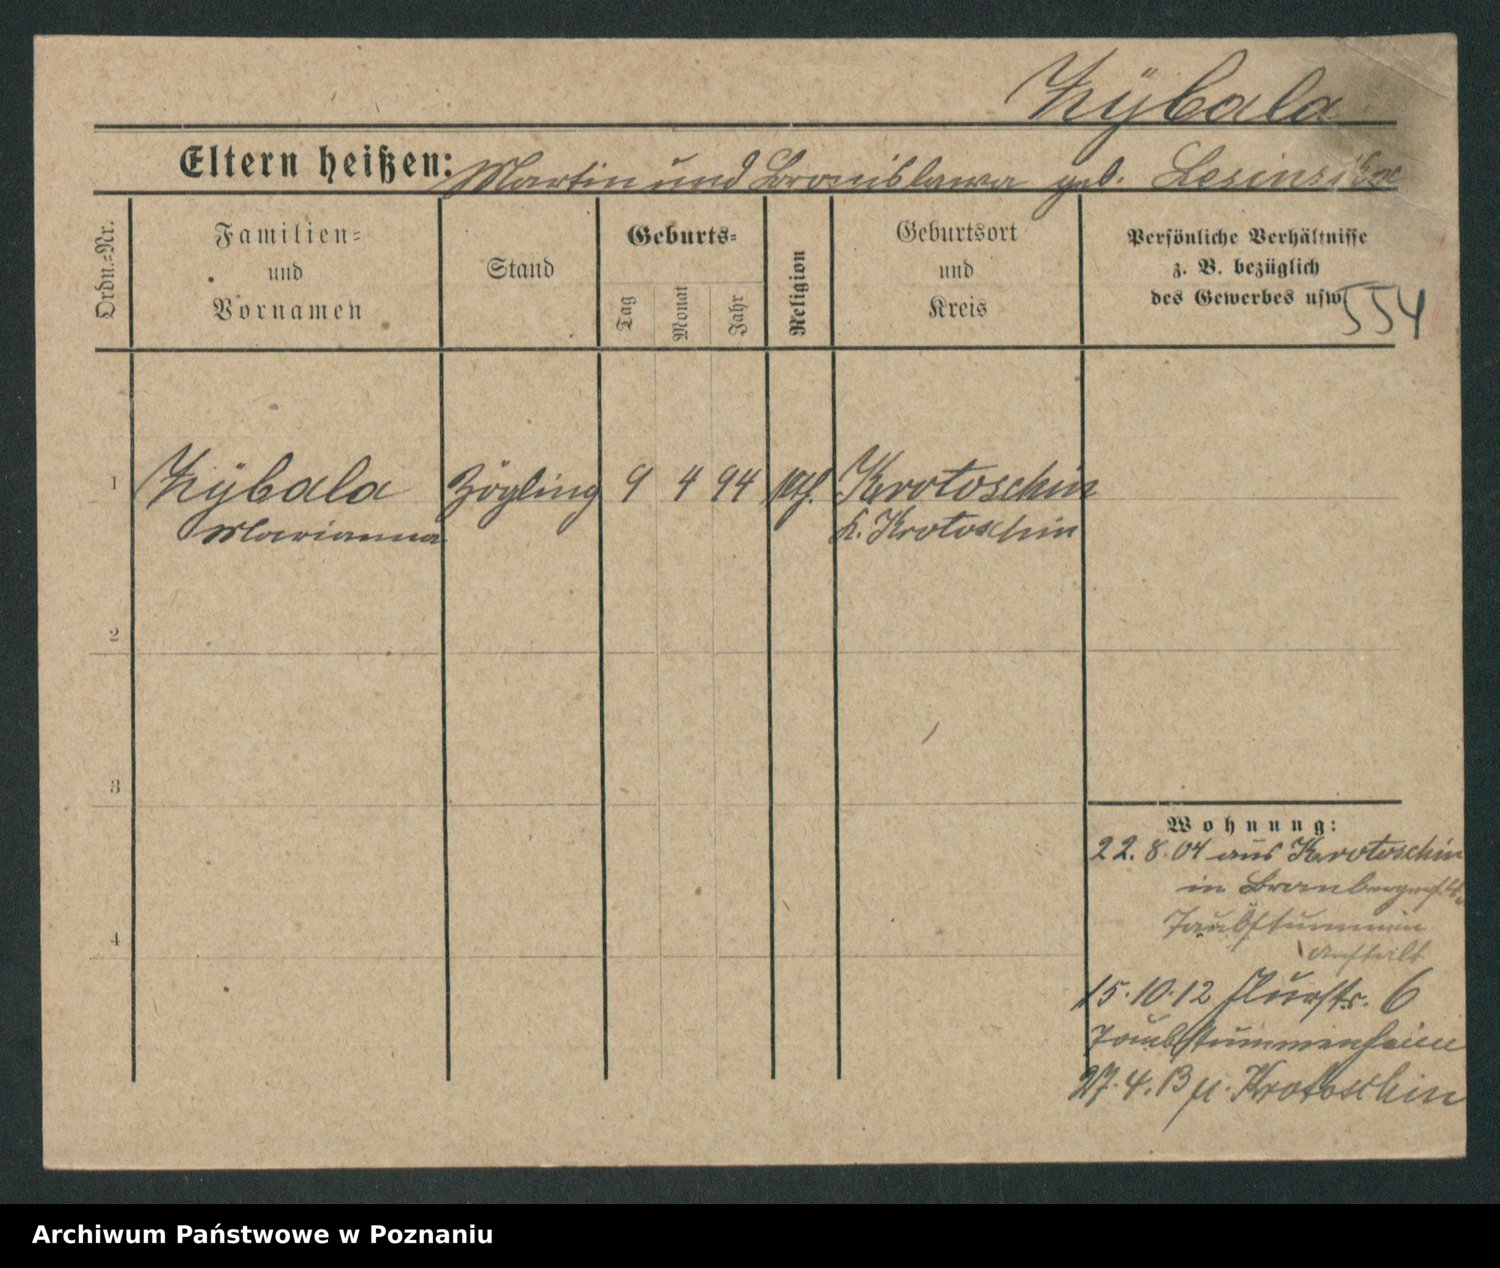 Kÿbala
Eltern heißen: Martin und Bronislawa geb. Lesinska
Ordn.-Nr.
Familien-
und
Vornamen
Stand
Geburts-
Tag
Monat
Jahr
Religion
Geburtsort
und
Kreis
Persönliche Verhältnisse
z. B. bezüglich
des Gewerbes usw.
554
1 Kÿbala Zögling 9 4 94 kth. Krotoschin
Marianna k. Krotoschin
2
3
4
Wohnung:
22. 8. 04 aus Krotoschin
in
Taubstummen
Anstalt
15. 10. 12 Flurstr. 6
Taubstummenheim
27. 4. 13 n. Krotoschin
Archiwum Państwowe w Poznaniu